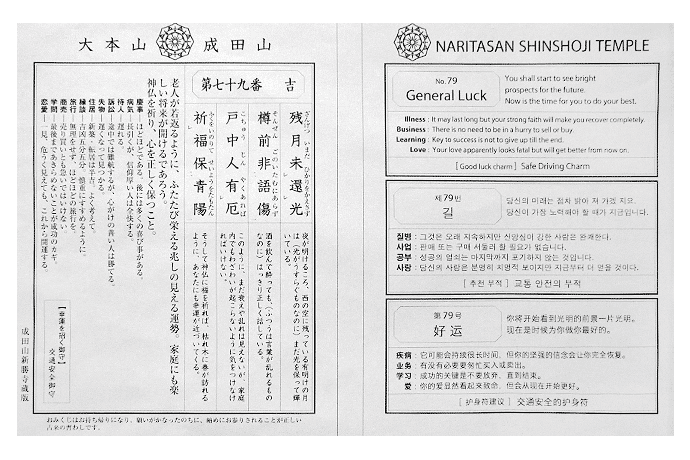 大本山 成田山
第七十九番 吉
残月未還光
樽前非語傷
戸中人有厄
祈福保青陽
夜が明けるころ、西の空に残っている有明けの月
は、光がうすらぐものなのに、まだ光を保って輝
いている。
酒を飲んで酔っても、(ふつうは言葉が乱れるもの
なのに)はっきり正しく話している。
このように、まだ衰えや乱れは見えないが、家庭
内でもわざわいが起こらないように気をつけなけ
ればいけない。
そうして神仏に福を祈れば、枯れ木に春が訪れる
ように、あなたにも幸運が近づいてくる。
老人が若返るように、ふたたび栄える兆しの見える運勢。家庭にも楽
しい将来が開けるであろう。
神仏を祈り、心を正しく保つこと。
慶事―ほどほどである。後には多くの喜び事がある。
病気―長引くが、信仰厚い人は全快する。
待人―遅れる。
訴訟―途中では難航するが、心がけの善い人は勝てる。
失物―遅くなって見つかる。
住居―新築・転居は半吉。よく考えて。
縁談―吉凶五分五分。慎重にすすめるように。
旅行―無理をせず、ほどほどの旅行を。
商売―売り買いとも急いではいけない。
学問―最後まであきらめないことが成功のカギ。
恋愛―一見、危うく見えても、これから開運する。
【幸運を招く御守】
交通安全御守
成田山新勝寺蔵版
おみくじはお持ち帰りになり、願いがかなったのちに、始めにお参りされることが正しい
古来の習わしです。
NARITASAN SHINSHOJI TEMPLE
No. 79
General Luck
You shall start to see bright
prospects for the future.
Now is the time for you to do your best.
Illness : It may last long but your strong faith will make you recover completely.
Business : There is no need to be in a hurry to sell or buy.
Learning : Key to success is not to give up till the end.
Love : Your love apparently looks fatal but will get better from now on.
[ Good luck charm ] Safe Driving Charm
제 79번
길
당신의 미래는 점차 밝아 져 가겠 지요.
당신이 가장 노력해야 할 때가 지금입니다.
질병 : 그것은 오래 지속하지만 신앙심이 강한 사람은 완쾌한다.
사업 : 판매 또는 구매 서둘러 할 필요가 없습니다.
공부 : 성공의 열쇠는 마지막까지 포기하지 않는 것입니다.
사랑 : 당신의 사랑은 분명히 치명적 보이지만 지금부터 더 얻을 것이다.
[ 추천 부적 ] 교통 안전의 부적
第 79号
好运
你将开始看到光明的前景一片光明。
现在是时候为你做你最好的。
疾病 : 它可能会持续很长时间，但你的坚强的信念会让你完全恢复。
业务 : 有没有必要要匆忙买入或卖出。
学习 : 成功的关键是不要放弃，直到结束。
爱 : 你的爱显然看起来致命，但会从现在开始更好。
[ 护身符建议 ] 交通安全的护身符